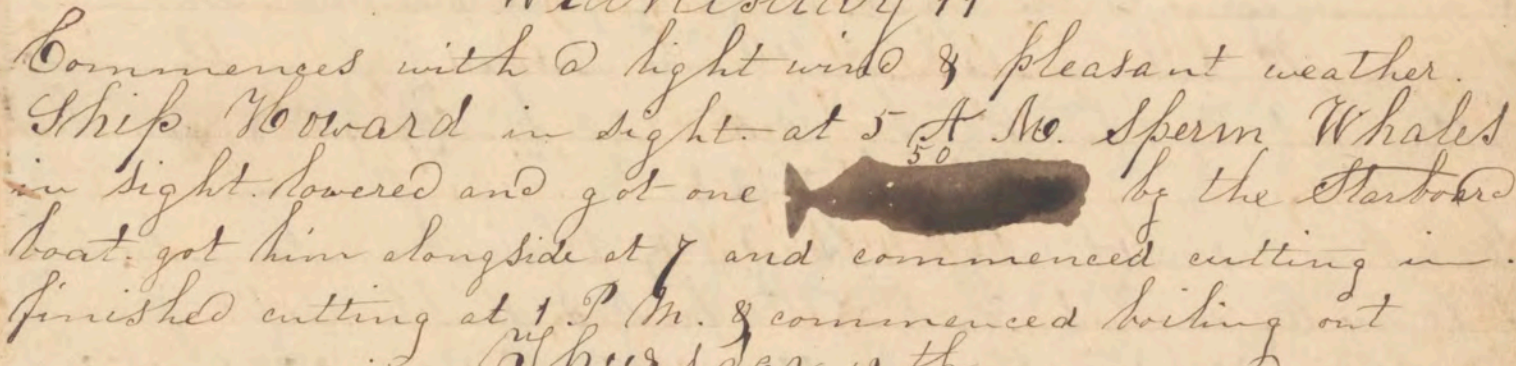 Wednesday 11
Commences with a light wind & pleasant weather.
Ship Howard in sight. at 5 A M. Sperm Whales
50
in sight. lowered and got one by the Starboard
boat. got him alongside at 7 and commenced cutting in.
finished cutting at 1. P M. & commenced boiling out
Thursday